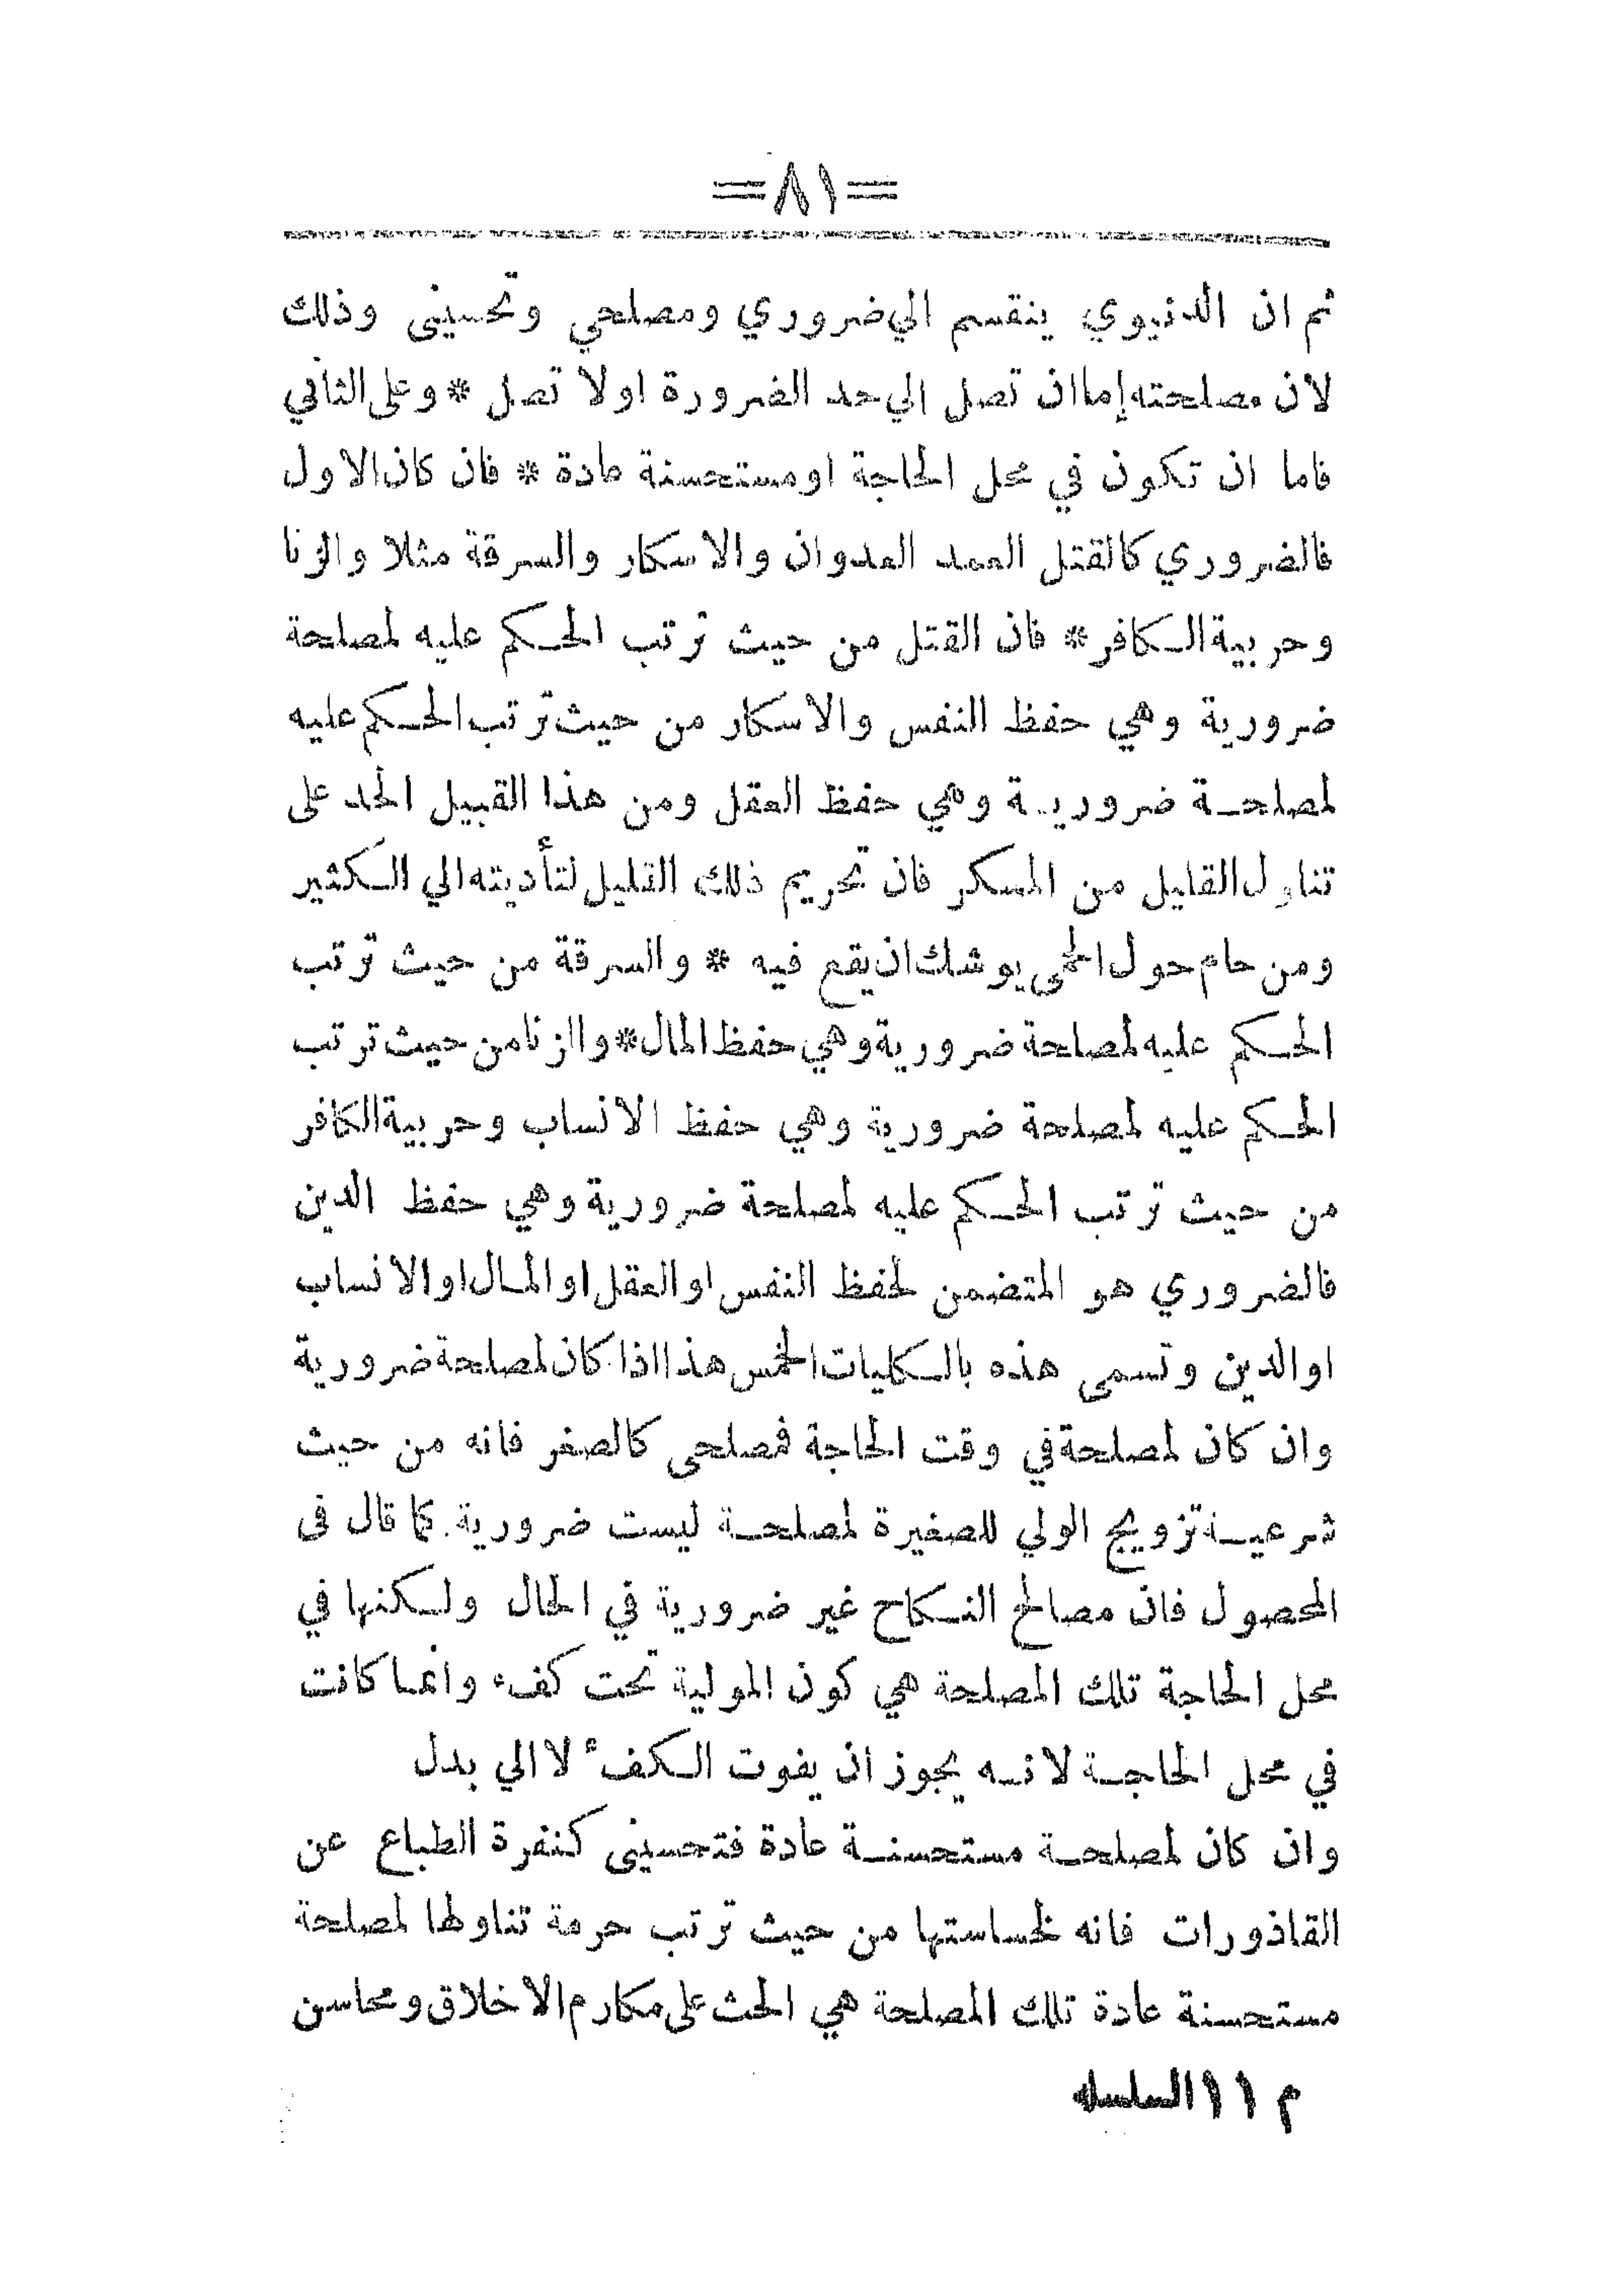 =٨١=
ثم ان الدنيوي ينقسم الي ضروري ومصلحي وتحسينى وذلك
لان مصلحته إما ان تصل الي حد الضرورة اولا تصل * وعلى الثاني
فاما ان تكون في محل الحاجة او مستحسنة عادة * فان كان الاول
فالضروري كالقتل العمد العدوان والاسكار والسرقة مثلا والزنا
وحربية الكافر * فان القتل من حيث ترتب الحكم عليه لمصلحة
ضرورية وهي حفظ النفس والاسكار من حيث ترتب الحكم عليه
لمصلحة ضرورية وهي حفظ العقل ومن هذا القبيل الحد على
تناول القليل من المسكر فان تحريم ذلك القليل لتأديته الي الكثير
ومن حام حول الحمى يوشك ان يقع فيه * والسرقة من حيث ترتب
الحكم عليه لمصلحة ضرورية وهي حفظ المال * والزنا من حيث ترتب
الحكم عليه لمصلحة ضرورية وهي حفظ الانساب وحربية الكافر
من حيث ترتب الحكم عليه لمصلحة ضرورية وهي حفظ الدين
فالضروري هو المتضمن لحفظ النفس او العقل او المال او الانساب
او الدين وتسمى هذه بالكليات الخمس هذا اذا كان لمصلحة ضرورية
وان كان لمصلحة في وقت الحاجة فمصلحى كالصغر فانه من حيث
شرعية تزويج الولي للصغيرة لمصلحة ليست ضرورية. كما قال فى
المحصول فان مصالح النكاح غير ضرورية في الحال ولكنها في
محل الحاجة تلك المصلحة هي كون المولية تحت كفء وانما كانت
في محل الحاجة لانه يجوز ان يفوت الكفء لا الي بدل
وان كان لمصلحة مستحسنة عادة فتحسينى كنفرة الطباع عن
القاذورات فانه لخساستها من حيث ترتب حرمة تناولها لمصلحة
مستحسنة عادة تلك المصلحة هي الحث على مكارم الاخلاق ومحاسن
م ١١ السلسله